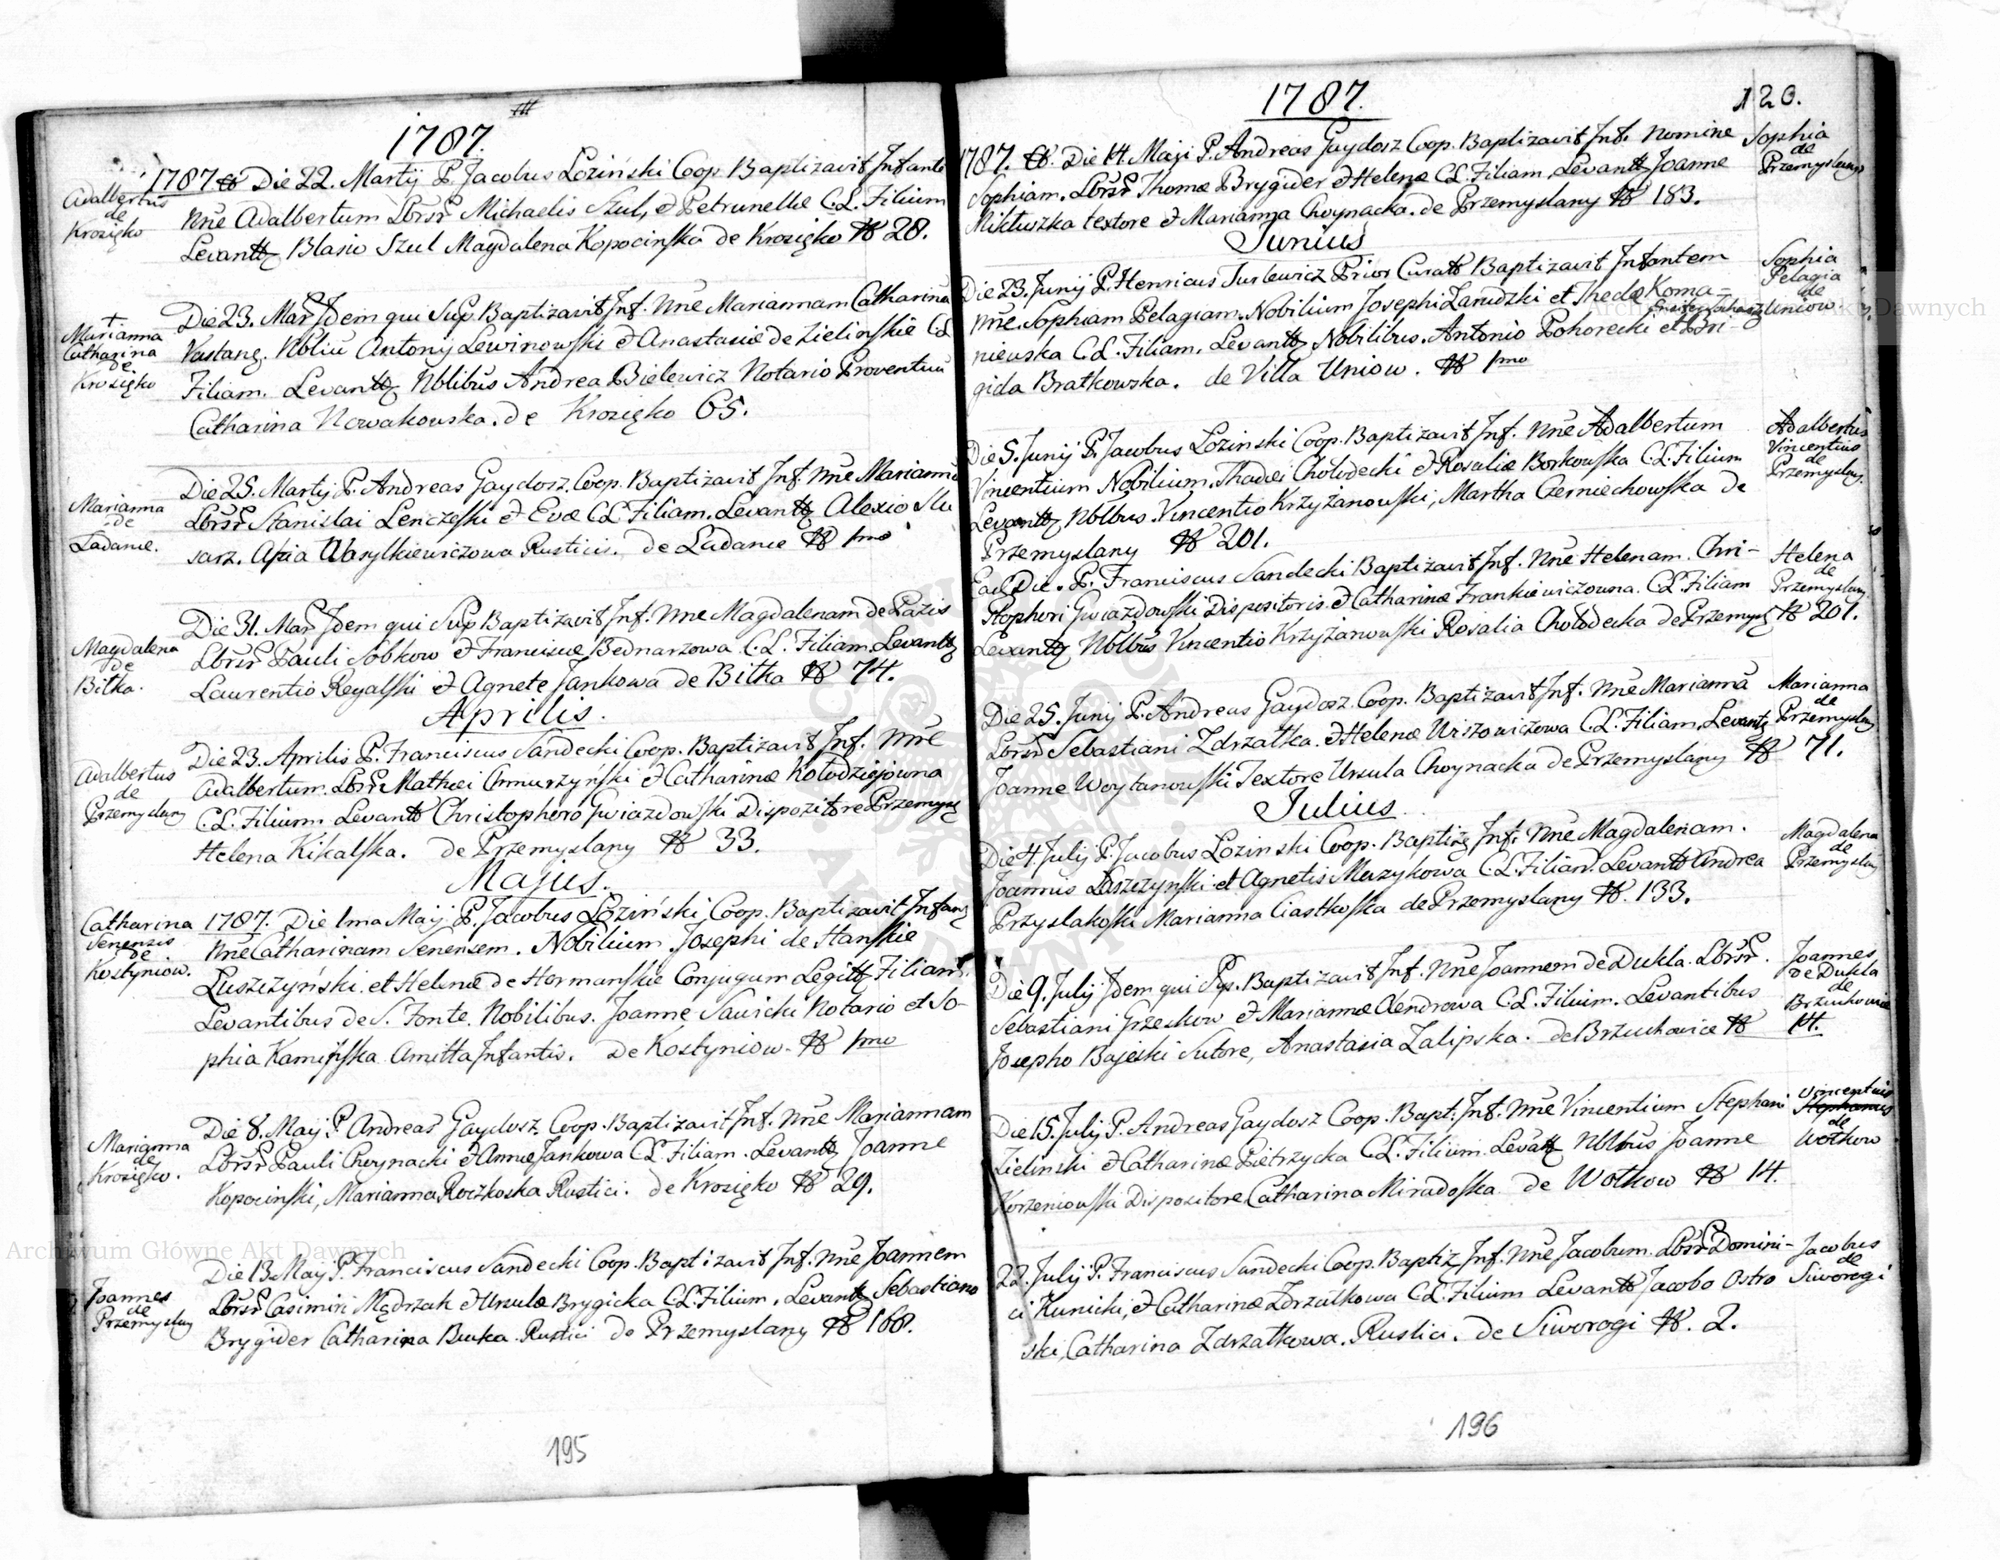 1787.
Adalbertus
de
Krosięko
1787 Die 22. Martij P. Jacobus Łoziński Coop. Baptizavit Infante
nñe Adalbertum Lbrsr Michaelis Szul, et Petrunellæ C.L. Filium
Levantt Blasio Szul Magdalena Kopocinska de Krosięko No 28.
Marianna
Catharina
de
Krosięko
Die 23. Mar. Idem qui Sup. Baptizavit Inf. nñe Mariannam Catharina
Nbliu Antonij Lewinowski et Anastasiæ de Zielinskie CL
Filiam. Levantt Nblibus Andrea Bielewicz Notario Proventuu
Catharina Nowakowska. de Krosięko 65.
Marianna
de
Ladance.
Die 25. Martij P. Andreas Gaydosz. Coop. Baptizavit Inf. nñe Marianna
Lbrsr Stanislai Lenczeski et Evæ CL Filiam. Levantt Alexio Slu
sarz. Apia Wasylkiewiczowa Rusticis. de Ladance No 1mo
Magdalena
de
Bitka.
Die 31. Mar. Idem qui Sup Baptizavit Inf. nñe Magdalenam de Pazis
Lbrsr Pauli Sobkow et Franciscæ Bednarzowa C.L. Filiam. Levantt
Laurentio Regalski et Agnete Jankowa de Bitka No 74.
Aprilis.
Adalbertus
de
Przemyslany
Die 23. Aprilis P. Franciscus Sandecki Coop. Baptizavit Inf. nñe
Adalbertum. Lbrsr Mathæi Chmurzyński et Catharinæ Kołodziejowna
C.L. Filium Levantt Christophero Gwiazdowski Dispozitore Przemysl
Helena Kikalska. de Przemyslany No 33.
Majus.
Catharina
Senensis
de
Kostyniow.
1787. Die 1ma Maij P. Jacobus Łoziński Coop. Baptizavit Infang
nñe Catharinam Senensem. Nobilium Josephi de Stanskie
Łuszczyński et Helenæ de Hormanskie Conjugum Legitt Filiam.
Levantibus de S. Fonte. Nobilibus. Joanne Sawicki Notario et So-
phia Kamińska Amitta Infantis. de Kostyniow. No 1mo
Marianna
de
Krosięko.
Die 8. Maij P. Andreas Gaydosz. Coop. Baptizavit Inf. nñe Mariannam
Lbrsr Pauli Choynacki et Annæ Jankowa CL Filiam. Levantt Joanne
Kopocinski, Marianna Roczkoska Rustici. de Krosięko No 29.
Joannes
de
Przemyslany
Die 13 Maij P. Franciscus Sandecki Coop. Baptizavit Inf. nñe Joannem
Lbrsr Casimiri Mędrzak et Ursulæ Brygicka CL Filium. Levantt Sebastiano
Brygider Catharina Buska Rustici de Przemyslany No 168.
195
1787.
120.
1787. Die 14 Maji P. Andreas Gaydosz Coop. Baptizavit Inf. nomine
Sophiam. Lbrsr Thomæ Brygider et Helenæ CL Filiam, Levantt Joanne
Mikluszka textore et Marianna Choynacka. de Przemyslany No 183.
Sophia
de
Przemyslany
Junius
Die 23. Junij P. Henricus Turlewicz Prior Curatt Baptizavit Infantem
nñe. Sophiam Pelagiam. Nobilium Josephi Zarudzki et Theclæ Koma-
niewska CL. Filiam. Levantt Nobilibus. Antonio Pohorecki et Bri-
gida Bratkowska. de Villa Uniow. No 1mo
Sophia
Pelagia
de
Uniow
Die 5. Junij P. Jacobus Łozinski Coop. Baptizavit Inf. nñe Adalbertum
Vincentium Nobilium. Thadæi Chołodecki et Rosaliæ Borkowska CL Filium
Levantt Nblbus. Vincentio Krzyżanowski, Martha Czerniechowska de
Przemyslany No 201.
Adalbertus
Vincentius
de
Przemyslany.
Ead Die. P. Franciscus Sandecki Baptizavit Inf. nñe Helenam. Chri-
stophori Gwiazdowski Dispositoris. et Catharinæ Frankiewiczowna. CL Filiam
Levantt Nblbus Vincentio Krzyżanowski Rosalia Chołodecka de Przemysl No 201.
Helena
de
Przemyslany
Die 25. Junij P. Andreas Gaydosz Coop. Baptizavit Inf. nñe Marianna
Lbrsr Sebastiani Zdrzałka. et Helenæ Urszowiczowa CL. Filiam. Levantt
Joanne Woytanowski Textore Ursula Choynacka de Przemyslany No 71.
Marianna
de
Przemyslany
Julius.
Die 4. Julij P. Jacobus Łozinski Coop. Baptiz Inf. nñe Magdalenam.
Joannis Łaszczynski et Agnetis Muzykowa CL. Filiam. Levantt Andrea
Przyslakoski Marianna Ciastkoska de Przemyslany No. 133.
Magdalena
de
Przemyslany
Die 9. Julij Idem qui Sup. Baptizavit Inf. nñe Joannem de Dukla. Lbrsr.
Sebastiani Grzeskow et Mariannæ Aendrowa CL. Filium. Levantibus
Josepho Bajeski Sutore, Anastasia Zalipska. de Brzuchowice No 14.
Joannes
de Dukla
de
Brzuchowice
Die 15. Julij P. Andreas Gaydosz Coop. Bapt. Inf. nñe Vincentium Stephani
Zielinski et Catharinæ Pietrzycka CL. Filium Levatt Nblbus Joanne
Korzeniowski Dispozitore, Catharina Miradoska de Wołkow No 14.
Vincentius
Stephanus
de
Wołkow
22. Julij P. Franciscus Sandecki Coop. Baptiz Inf. nñe Jacobum. Lbrsr Domini-
ci Kunicki, et Catharinæ Zdrzałkowa CL. Filium Levantt Jacobo Ostro
ski, Catharina Zdrzałkowa. Rustici. de Siworogi No. 2.
Jacobus
de
Siworogi
196
Archiwum Główne Akt Dawnych